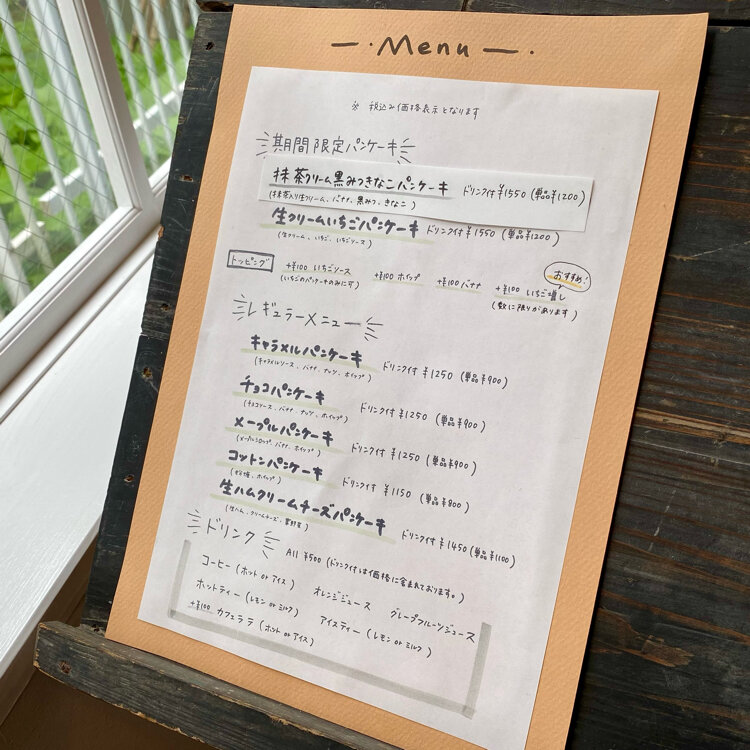 Menu
※ 税込み価格表示となります
期間限定パンケーキ
抹茶クリーム黒みつきなこパンケーキ ドリンク付 ¥1550 (単品¥1200)
(抹茶入り生クリーム、バナナ、黒みつ、きなこ)
生クリームいちごパンケーキ ドリンク付 ¥1550 (単品¥1200)
(生クリーム、いちご、いちごソース)
トッピング +¥100 いちごソース +¥100 ホイップ +¥100 バナナ +¥100 いちご増し おすすめ!
(いちごのパンケーキのみにす) (数に限りがあります)
レギュラーメニュー
キャラメルパンケーキ ドリンク付 ¥1250 (単品¥900)
(キャラメルソース、バナナ、ナッツ、ホイップ)
チョコパンケーキ ドリンク付 ¥1250 (単品¥900)
(チョコソース、バナナ、ナッツ、ホイップ)
メープルパンケーキ ドリンク付 ¥1250 (単品¥900)
(メープルシロップ、バナナ、ホイップ)
コットンパンケーキ ドリンク付 ¥1150 (単品¥800)
(粉糖、ホイップ)
生ハムクリームチーズパンケーキ ドリンク付 ¥1450 (単品¥1100)
(生ハム、クリームチーズ、葉野菜)
ドリンク All ¥500 (ドリンク付は価格に含まれております。)
コーヒー (ホット or アイス) オレンジジュース グレープフルーツジュース
ホットティー (レモン or ミルク) アイスティー (レモン or ミルク)
+¥100 カフェラテ (ホット or アイス)